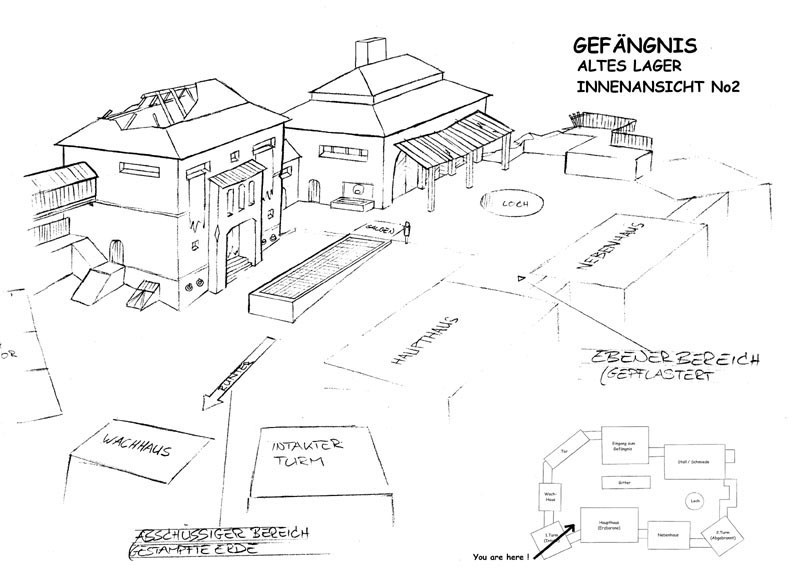 GEFÄNGNIS
ALTES LAGER
INNENANSICHT No2
LOCH
GALGEN
NEBENHAUS
HAUPTHAUS
EBENER BEREICH
(GEPFLASTERT
OR
RUNTER
WACHHAUS
INTAKTER
TURM
ABSCHÜSSIGER BEREICH
(GESTAMPFTE ERDE
Eingang zum
Gefängnis
Tor
Stall / Schmiede
Gitter
Wach-
Haus
Loch
Haupthaus
(Erzbarone)
Nebenhaus
1.Turm
2.Turm
(Abgebrannt)
You are here !